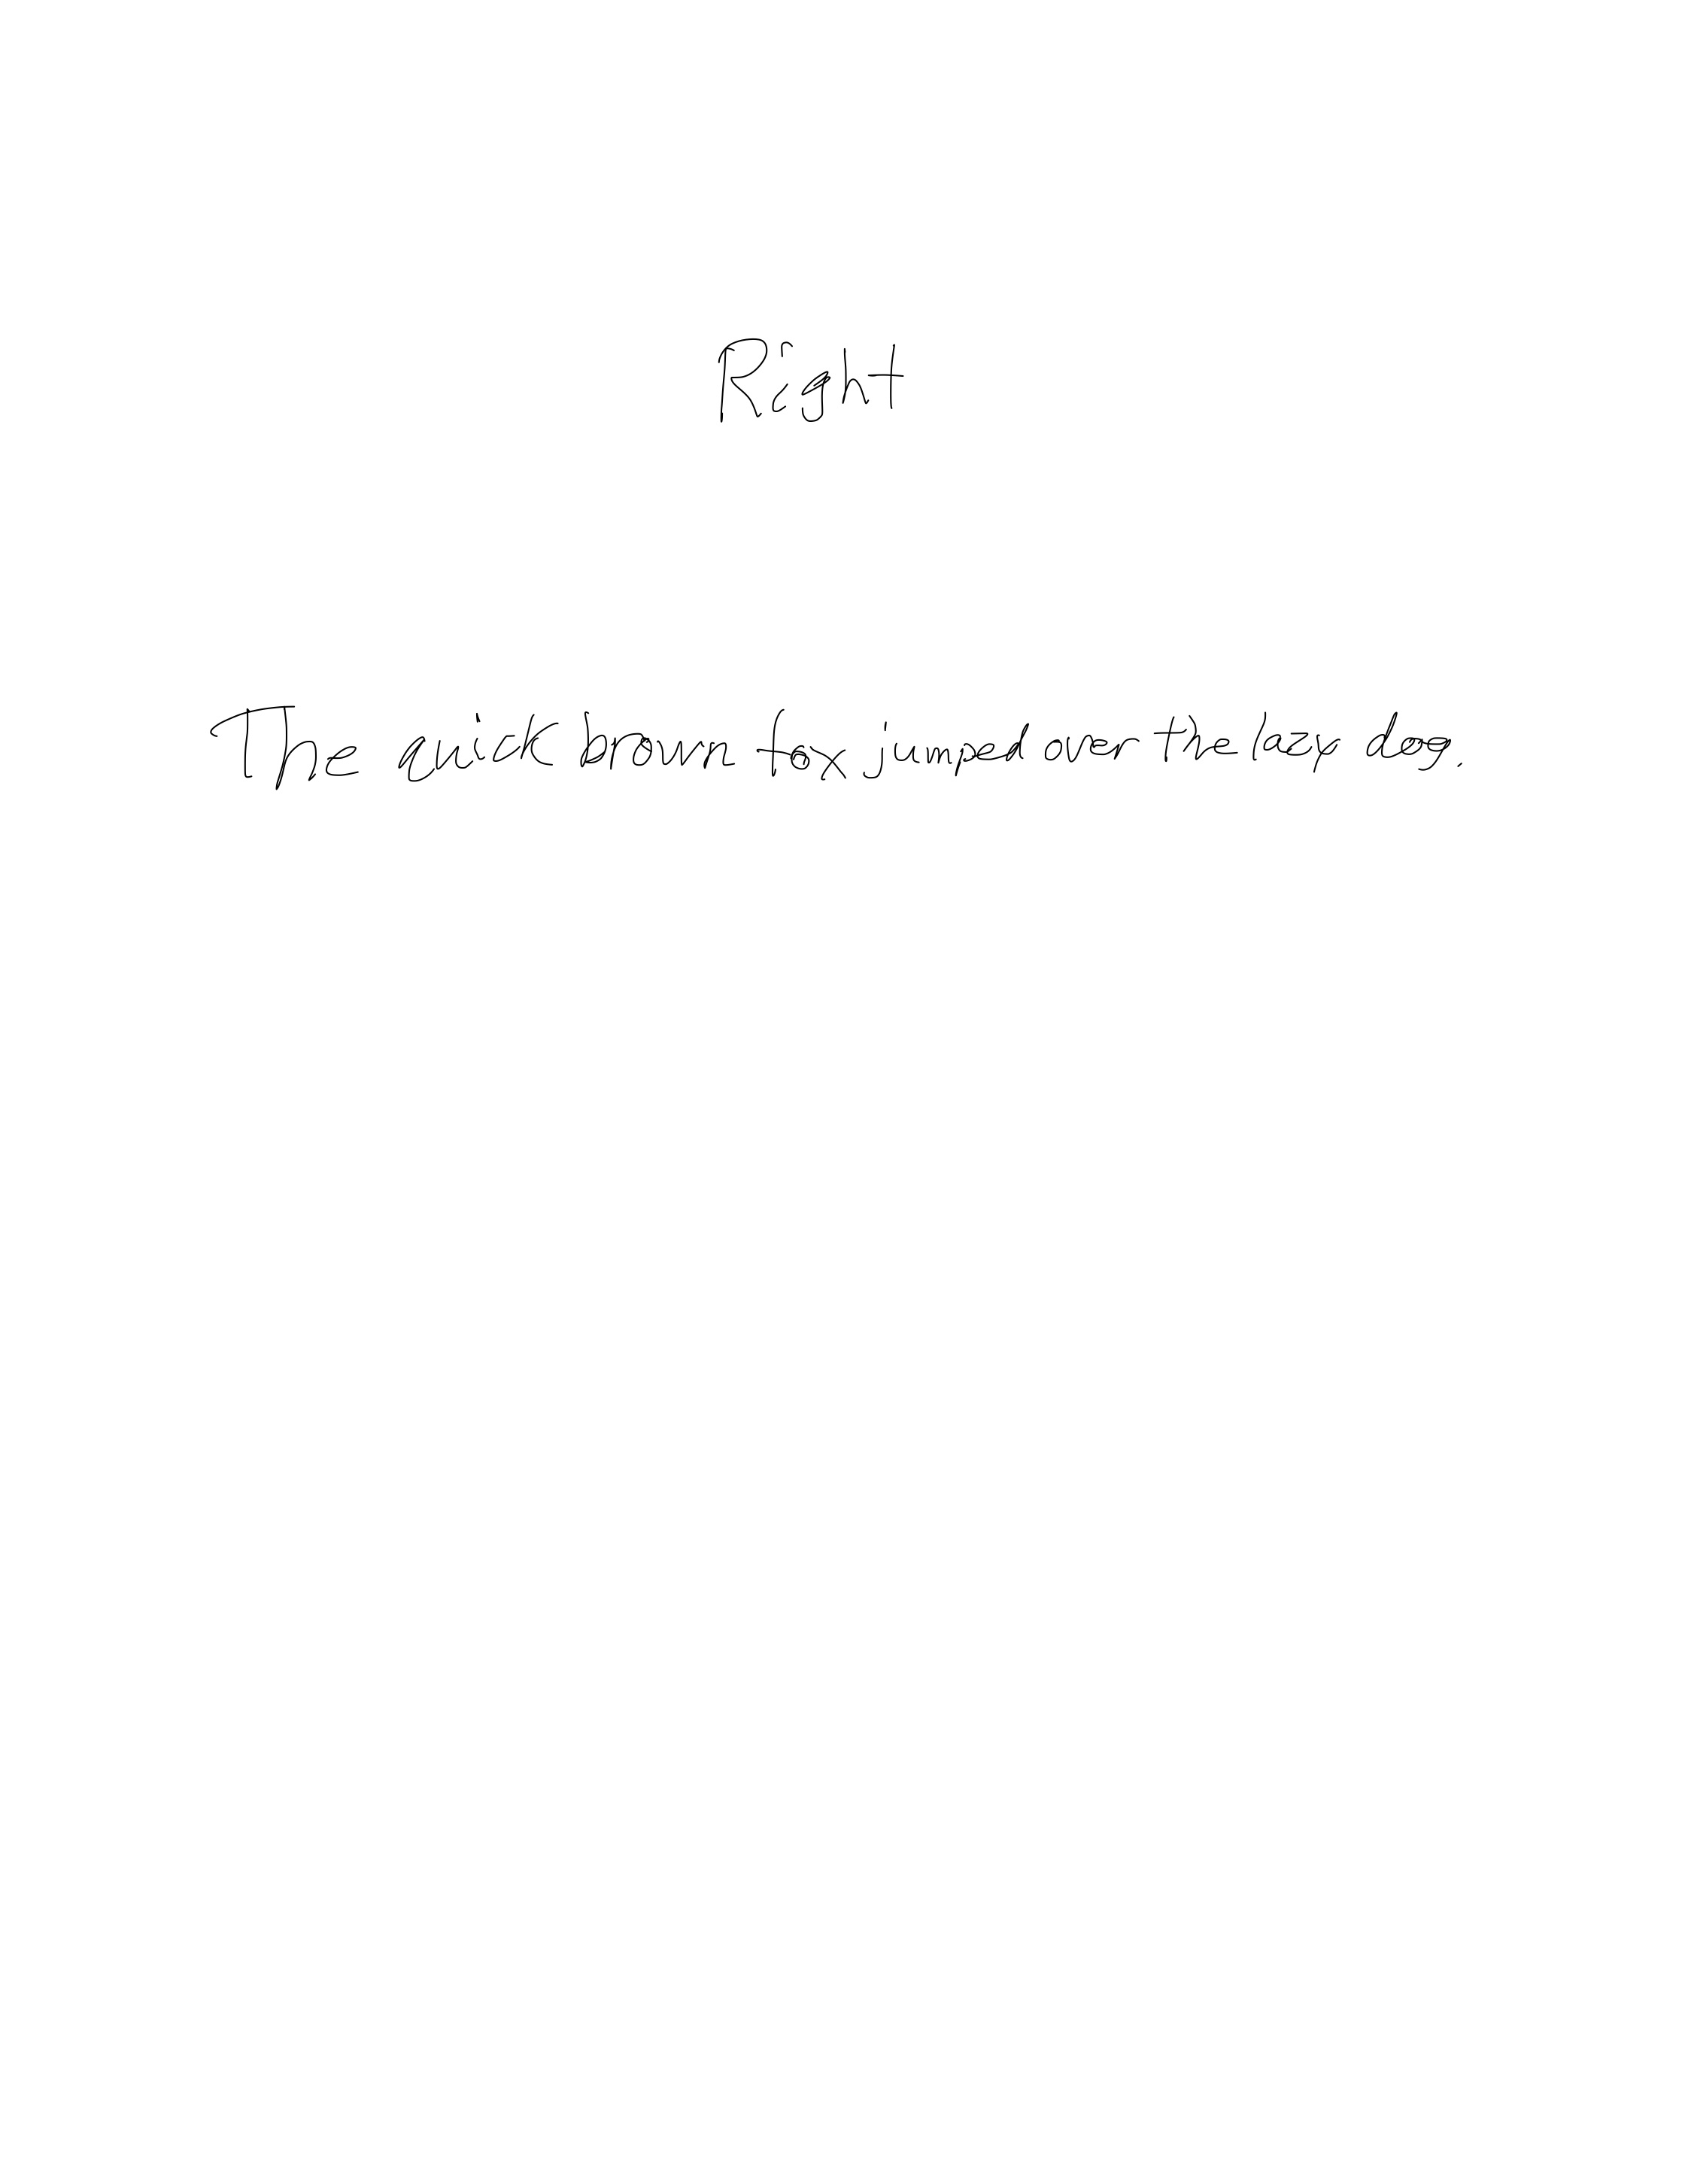 Right
The quick brown fox jumped over the lazy dog.